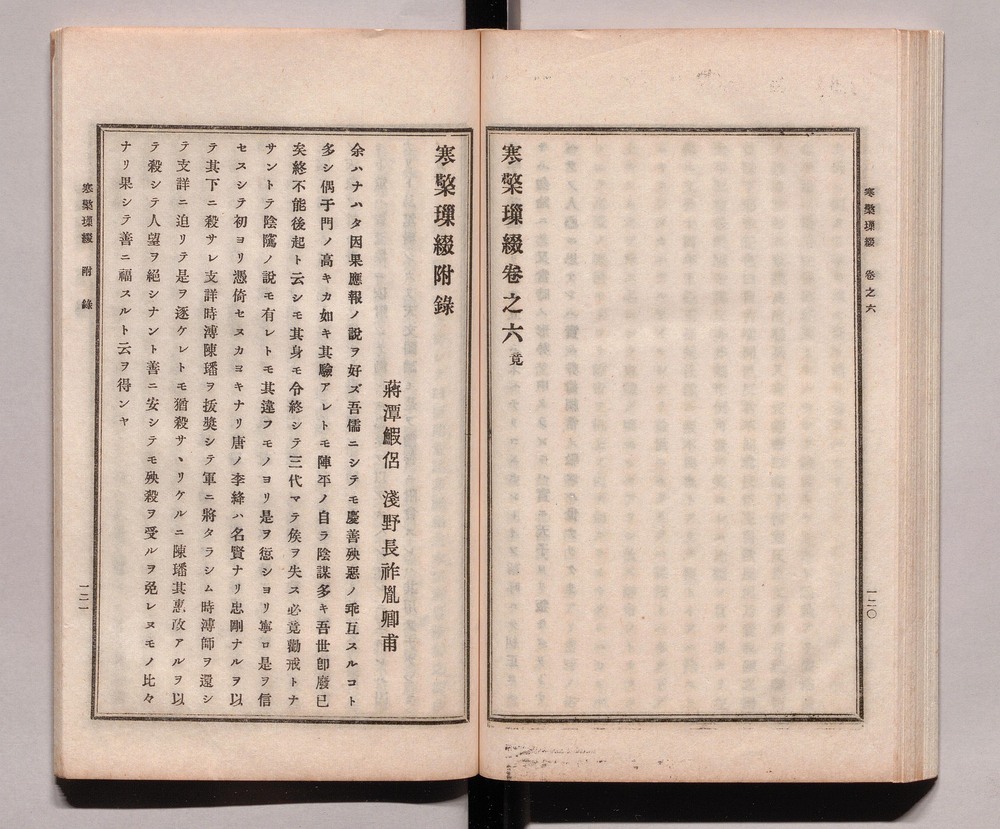 寒檠璅綴 卷之六
一二〇
寒檠璅綴卷之六竟
寒檠璅綴附錄
蔣潭鰕侶 淺野長祚胤卿甫
余ハナハタ因果應報ノ說ヲ好ズ吾儒ニシテモ慶善殃惡ノ乖互スルコト
多シ偶于門ノ高キカ如キ其驗アレトモ陣平ノ自ラ陰謀多キ吾世卽廢已
矣終不能後起ト云シモ其身モ令終シテ三代マテ矦ヲ失ス必竟勸戒トナ
サントテ陰隲ノ說モ有レトモ其違フモノヨリ是ヲ愆シヨリ寧ロ是ヲ信
セスシテ初ヨリ憑倚セヌカヨキナリ唐ノ李絳ハ名賢ナリ忠剛ナルヲ以
テ其下ニ殺サレ支詳時溥陳璠ヲ拔奬シテ軍ニ將タラシム時溥師ヲ還シ
テ支詳ニ迫リテ是ヲ逐ケレトモ猶殺サヽリケルニ陳璠其惠政アルヲ以
テ殺シテ人望ヲ絕シナント善ニ安シテモ殃殺ヲ受ルヲ免レヌモノ比々
ナリ果シテ善ニ福スルト云ヲ得ンヤ
寒檠璅綴 附 錄
一二一